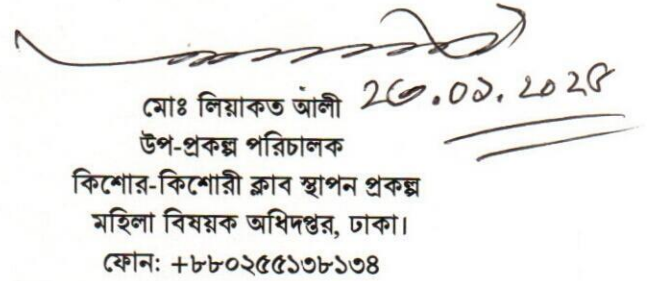 মোঃ লিয়াকত আলী ২৩.০১.২০২৫
উপ-প্রকল্প পরিচালক
কিশোর-কিশোরী ক্লাব স্থাপন প্রকল্প
মহিলা বিষয়ক অধিদপ্তর, ঢাকা।
ফোন: +৮৮০২৫৫১৩৮১৩৪